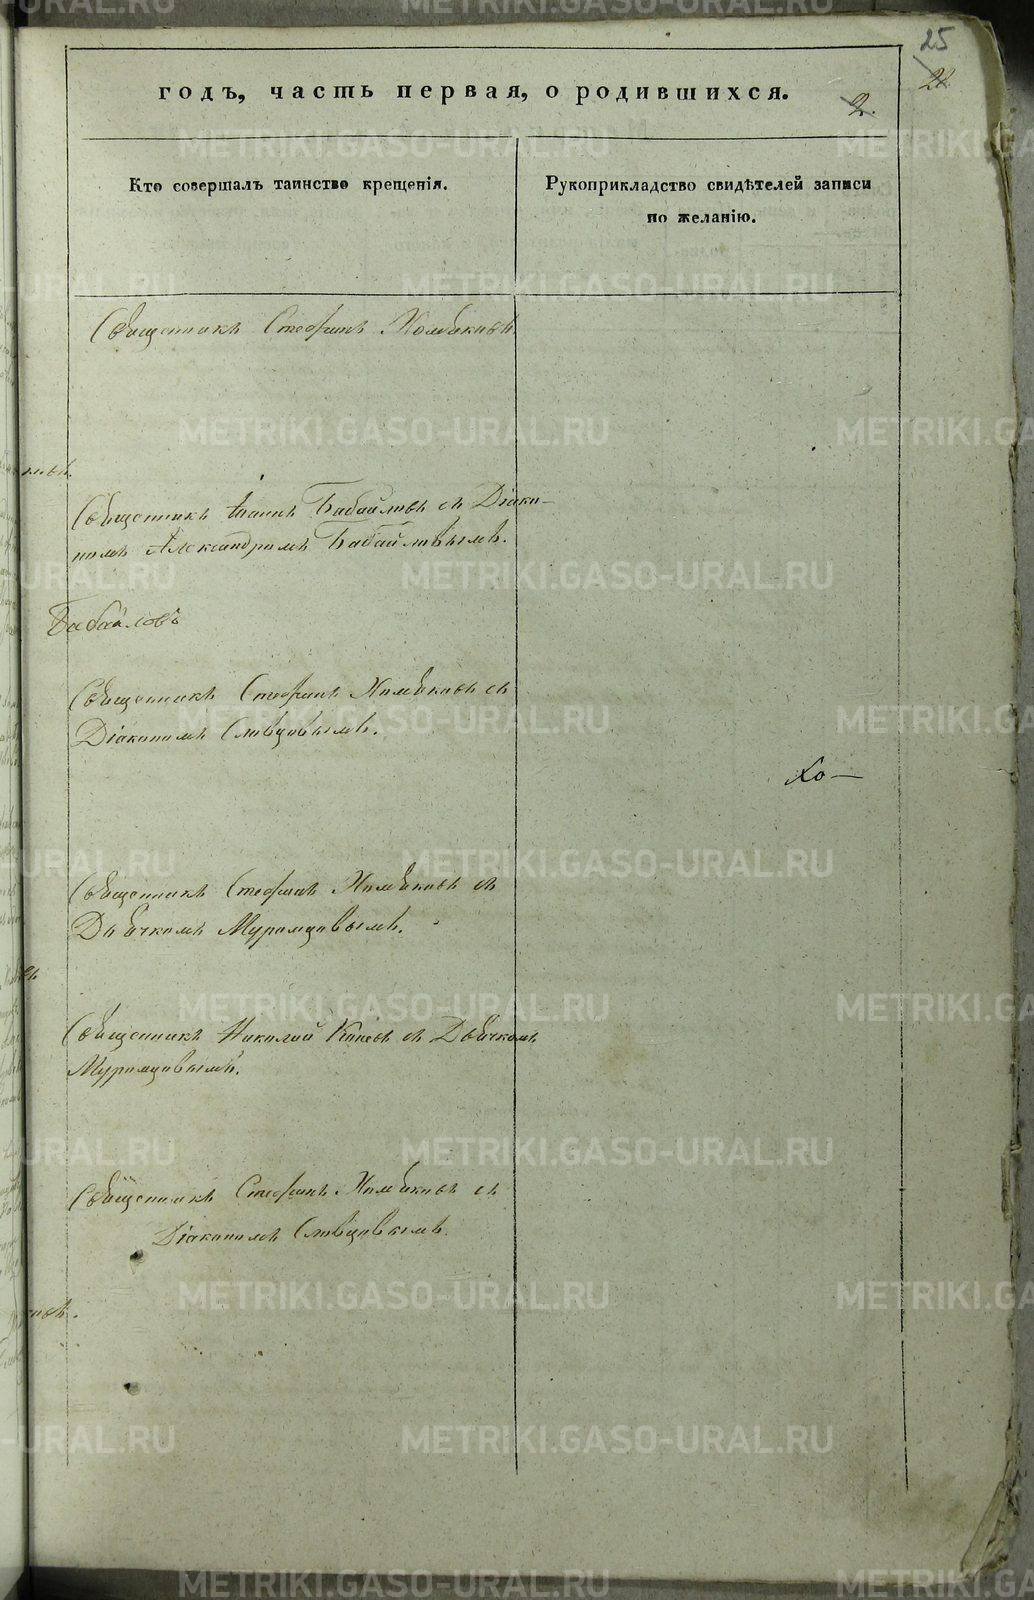 25
22
годъ, часть первая, о родившихся.
2.
Кто совершалъ таинство крещенія.
Рукоприкладство свидѣтелей записи
по желанію.
Священникъ Стефанъ Хомяковъ
Священникъ Іоаннъ Бабайловъ съ Діако-
номъ Александромъ Бабайловымъ.
Бабайловъ
Священникъ Стефанъ Хомяковъ съ
Діакономъ Словцовымъ.
Хо—
Священникъ Стефанъ Хомяковъ съ
Дьячкомъ Муромцовымъ.
Священникъ Николай съ Дьячкомъ
Муромцовымъ.
Священникъ Стефанъ Хомяковъ съ
Діакономъ Словцовымъ.
METRIKI.GASO-URAL.RU